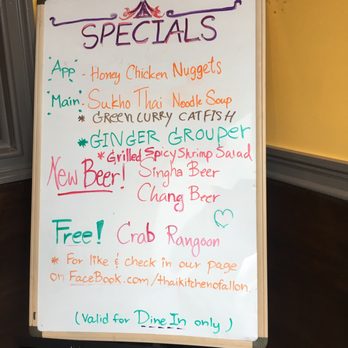 SPECIALS
App - Honey Chicken Nuggets
Main - Sukho Thai Noodle Soup
* GREEN CURRY CATFISH
* GINGER GROUPER
* Grilled Spicy Shrimp Salad
New Beer! Singha Beer
Chang Beer
Free! Crab Rangoon
* For like & check in our page
on FaceBook.com/thaikitchenofallon.
(Valid for Dine In only)